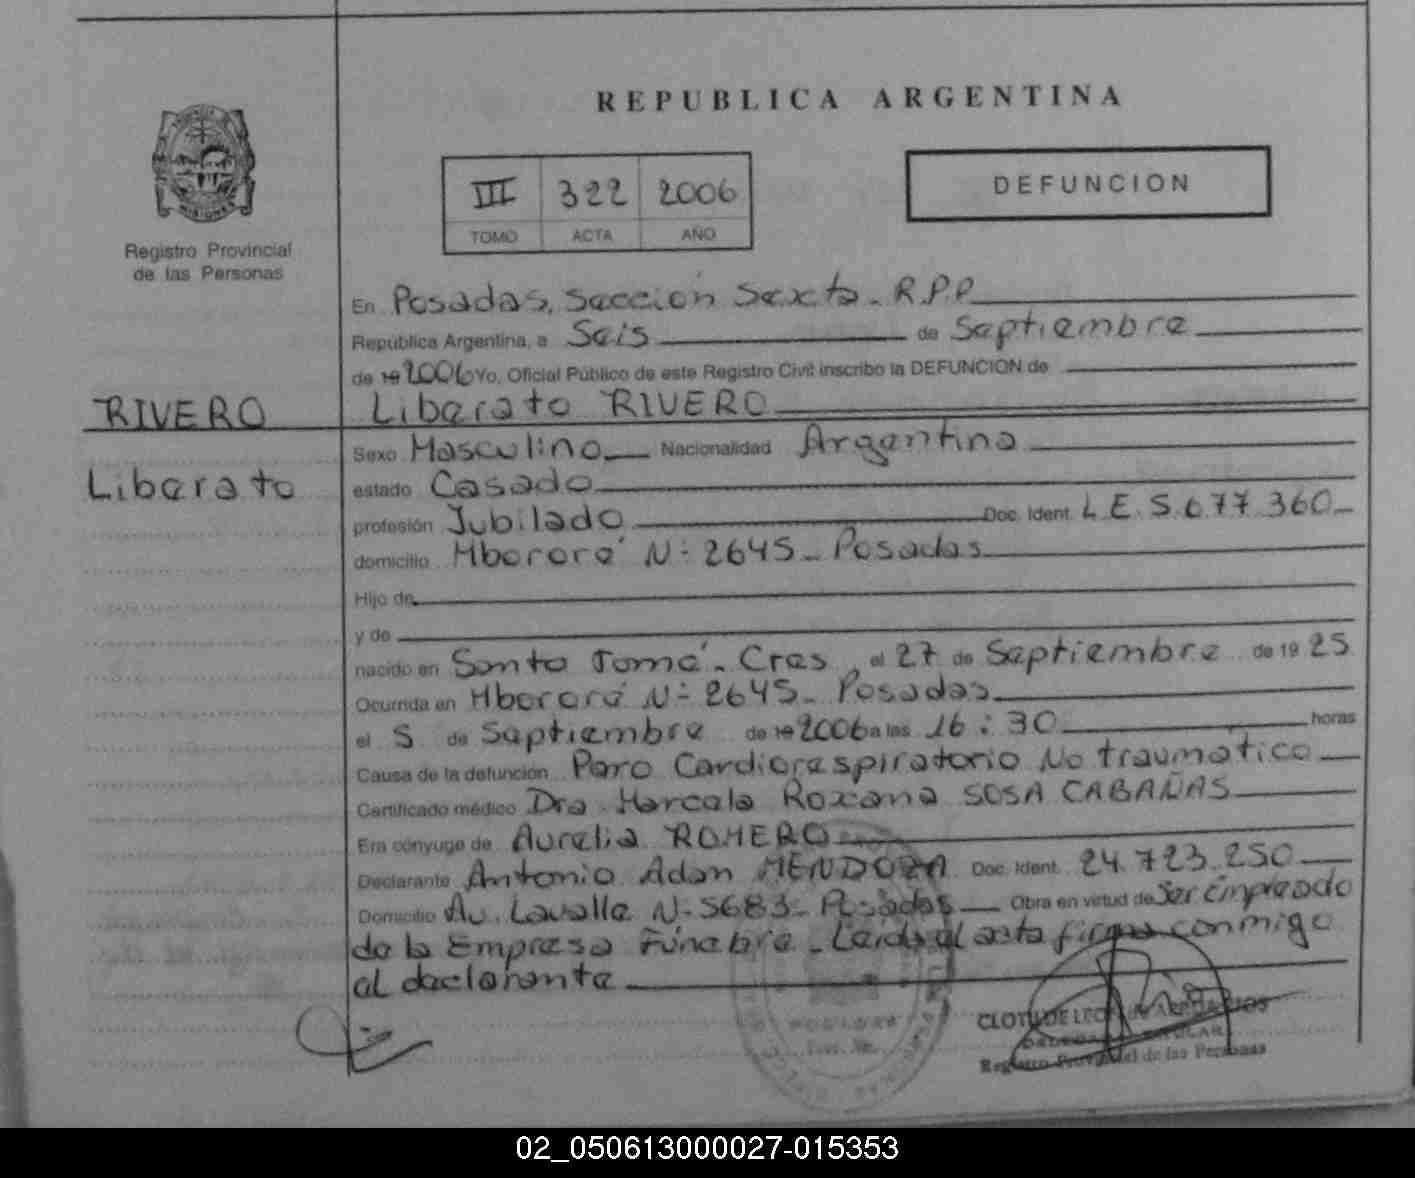 REPUBLICA ARGENTINA
MISIONES
Registro Provincial
de las Personas
III 322 2006
TOMO ACTA AÑO
DEFUNCION
En Posadas, Sección Sexta - R.P.P.
República Argentina, a Seis de Septiembre
de 19 2006 Yo, Oficial Público de este Registro Civil inscribo la DEFUNCION de
RIVERO Liberato RIVERO
Liberato
Sexo Masculino Nacionalidad Argentina
estado Casado
profesión Jubilado Doc. Ident. L.E. 5.677.360
domicilio Mbororé N: 2645 - Posadas
Hijo de
y de
nacido en Santo Tomé - Ctes el 27 de Septiembre de 19 25
Ocurrida en Mbororé N: 2645 - Posadas
el 5 de Septiembre de 19 2006 a las 16:30 horas
Causa de la defunción Paro Cardiorespiratorio No traumático
Certificado médico Dra. Marcela Roxana SOSA CABAÑAS
Era cónyuge de Aurelia ROMERO
Declarante Antonio Adan MENDOZA Doc. Ident. 24.723.250
Domicilio Av. Lavalle N: 5683 - Posadas Obra en virtud de Ser Empleado
de la Empresa Fúnebre - Leída el acta firma conmigo
al declarante
POSADAS
Registro Provincial de las Personas
02_050613000027-015353